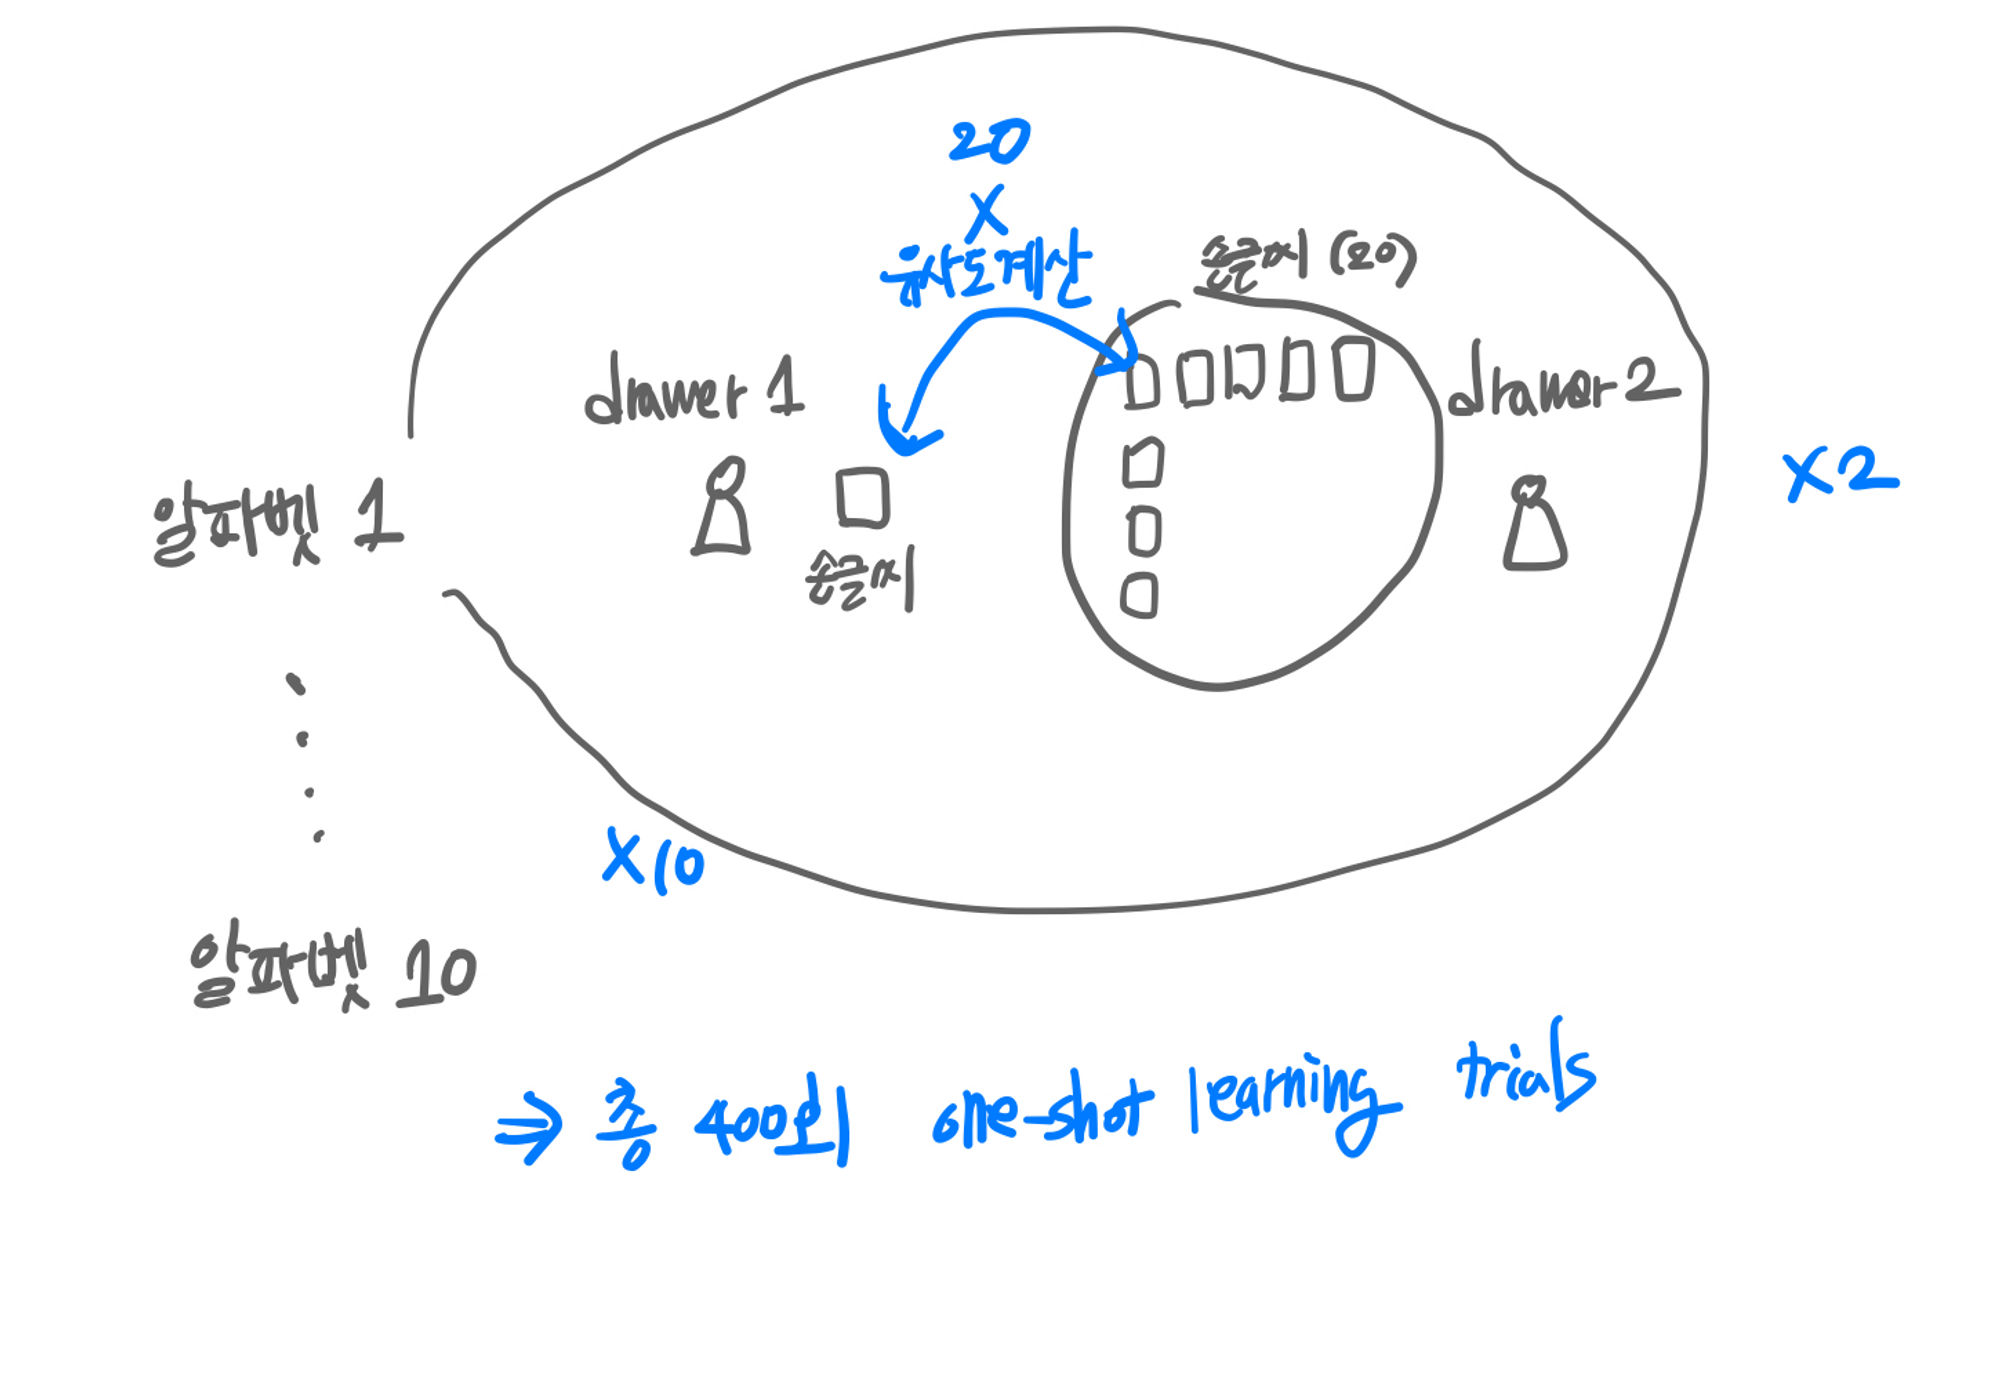 20
X
유사도계산
손글씨 (20)
drawer 1
drawer 2
X2
알파벳 1
손글씨
X10
알파벳 10
⇒ 총 400회 one-shot learning trials